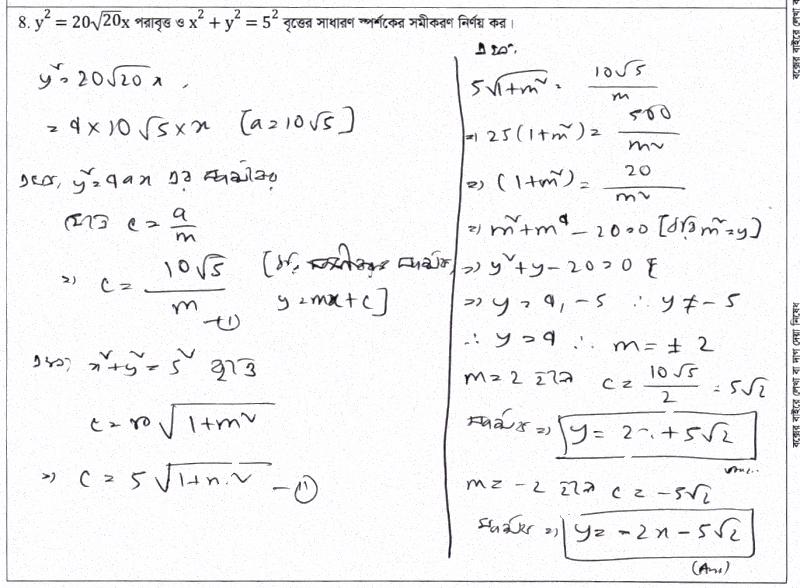 8. y² = 20√20x পরাবৃত্ত ও x² + y² = 5² বৃত্তের সাধারণ স্পর্শকের সমীকরণ নির্ণয় কর।
y² = 20√20 x,
= 4 × 10√5 × x [a = 10√5]
এখন, y² = 4ax এর স্পর্শক
হতে c = a/m
⇒ c = 10√5/m —(i)
y = mx + c]
এখন, x² + y² = 5² হতে
c = r√1+m²
⇒ c = 5√1+m² —(ii)
5√1+m² = 10√5/m
⇒ 25(1+m²) = 500/m²
⇒ (1+m²) = 20/m²
⇒ m² + m⁴ - 20 = 0 [ধরি m² = y]
⇒ y² + y - 20 = 0
⇒ y = 4, -5 ∴ y ≠ -5
∴ y = 4 ∴ m = ± 2
m = 2 হলে c = 10√5/2 = 5√2
স্পর্শক ⇒ y = 2x + 5√2
Ans.
m = -2 হলে c = -5√2
স্পর্শক ⇒ y = -2x - 5√2
(Ans)
বক্সের বাইরে লেখা বা দাগ দেয়া নিষেধ